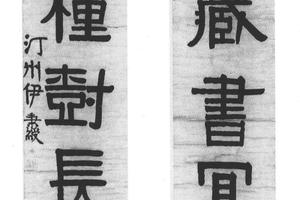 藏書冝
種樹長
汀州伊秉綬